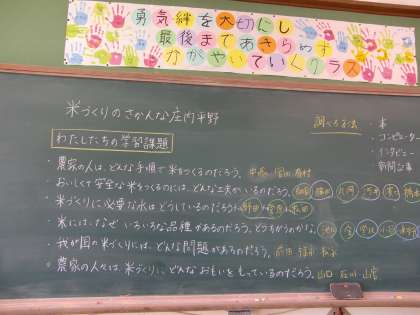 勇気絆を大切にし
最後まであきらめず
かがやいていくクラス
米づくりのさかんな庄内平野
わたしたちの学習課題
調べる方法
・本
・コンピューター
・インタビュー
・新聞記事
・農家の人は、どんな手順で米をつくるのだろう。
・おいしくて安全な米をつくるのには、どんな工夫がいるのだろう。
・米づくりに必要な水はどうしているのだろう。
・米には、なぜいろいろな品種があるのだろう。どうちがうのかな。
・我が国の米づくりには、どんな問題があるのだろう。
・農家の人々は、米づくりに、どんなおもいをもっているのだろう。山口 石川